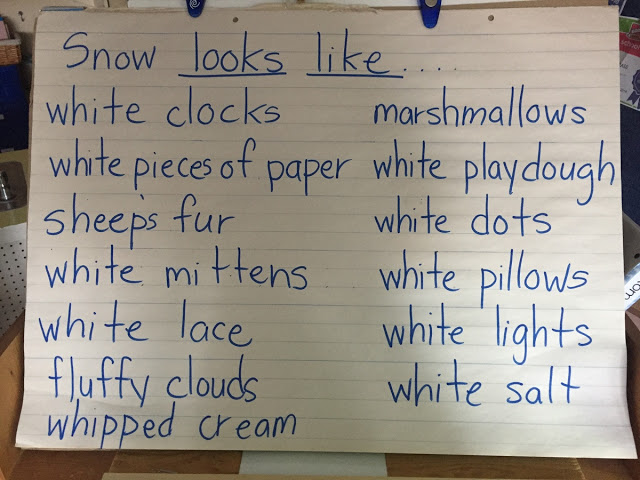 Snow looks like....
white clocks
white pieces of paper
sheep's fur
white mittens
white lace
fluffy clouds
whipped cream
marshmallows
white playdough
white dots
white pillows
white lights
white salt